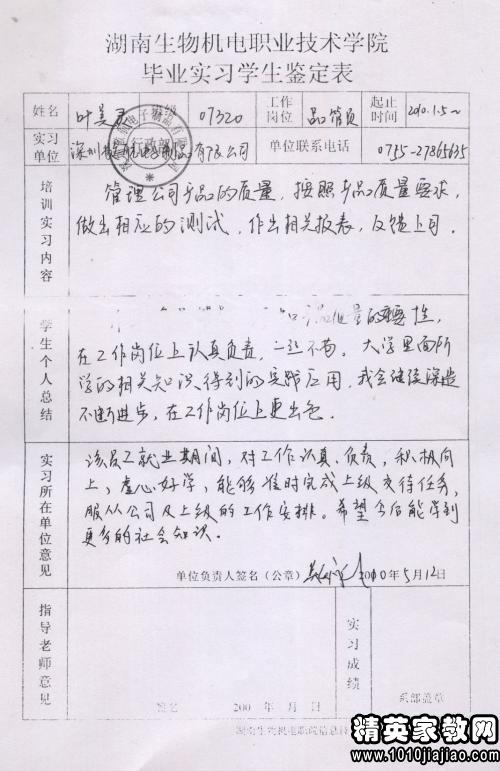 湖南生物机电职业技术学院
毕业实习学生鉴定表
姓名 叶美 班级 07320 工作岗位 品管员 起止时间 2010.1.5~
实习单位 深圳 有限公司 单位联系电话 0755-27865635
培训实习内容
管理公司产品的质量，按照产品质量要求，
做出相应的测试，作出相关报表，反馈上司．
学生个人总结
质量的重要性，
在工作岗位上认真负责，一丝不苟．大学里面所
学的相关知识得到的实践应用，我会继续深造
不断进步，在工作岗位上更出色．
实习所在单位意见
该员工就业期间，对工作认真、负责，积极向
上，虚心好学，能够准时完成上级交待任务，
服从公司及上级的工作安排。希望今后能学到
更多的社会知识．
单位负责人签名（公章） 2010年5月12日
指导老师意见
实习成绩
签名 200 年 月 日
系部盖章
湖南生物机电职院信息技
精英家教网
www.1010jiajiao.com